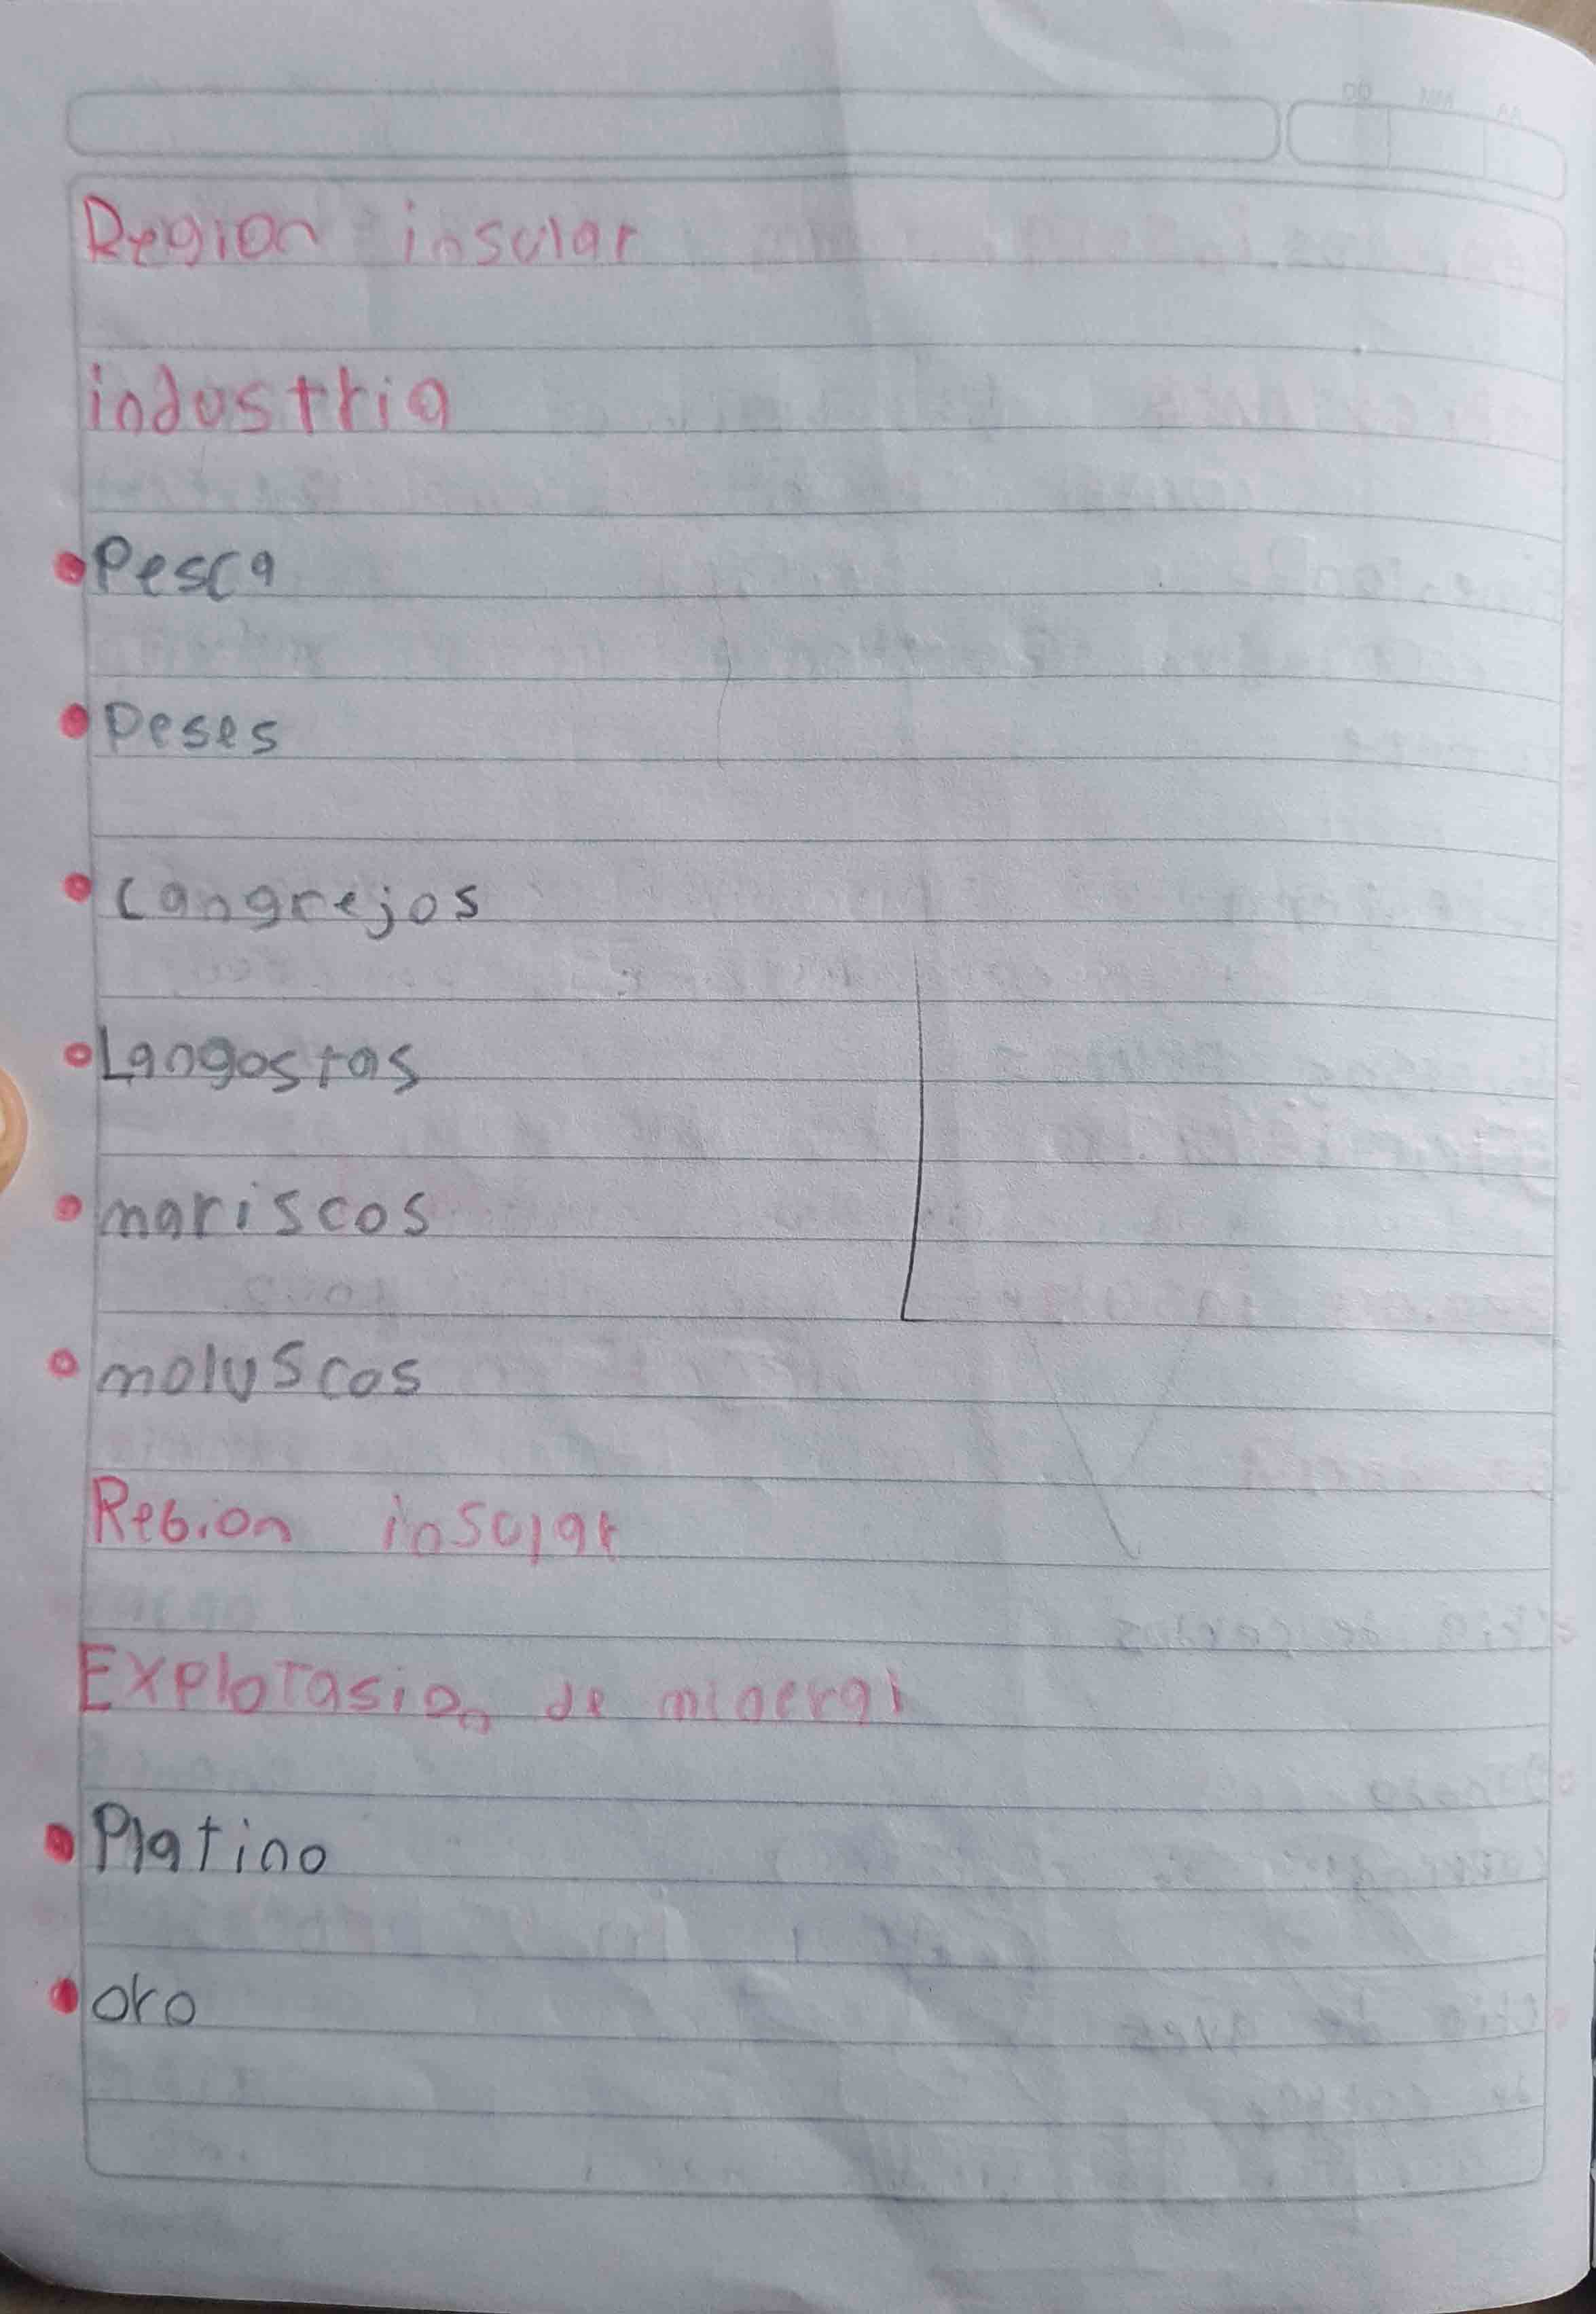 Region insular
industria
Pesca
Peses
Cangrejos
Langostas
mariscos
moluscos
Region insular
Explotasion de mineral
Platino
oro